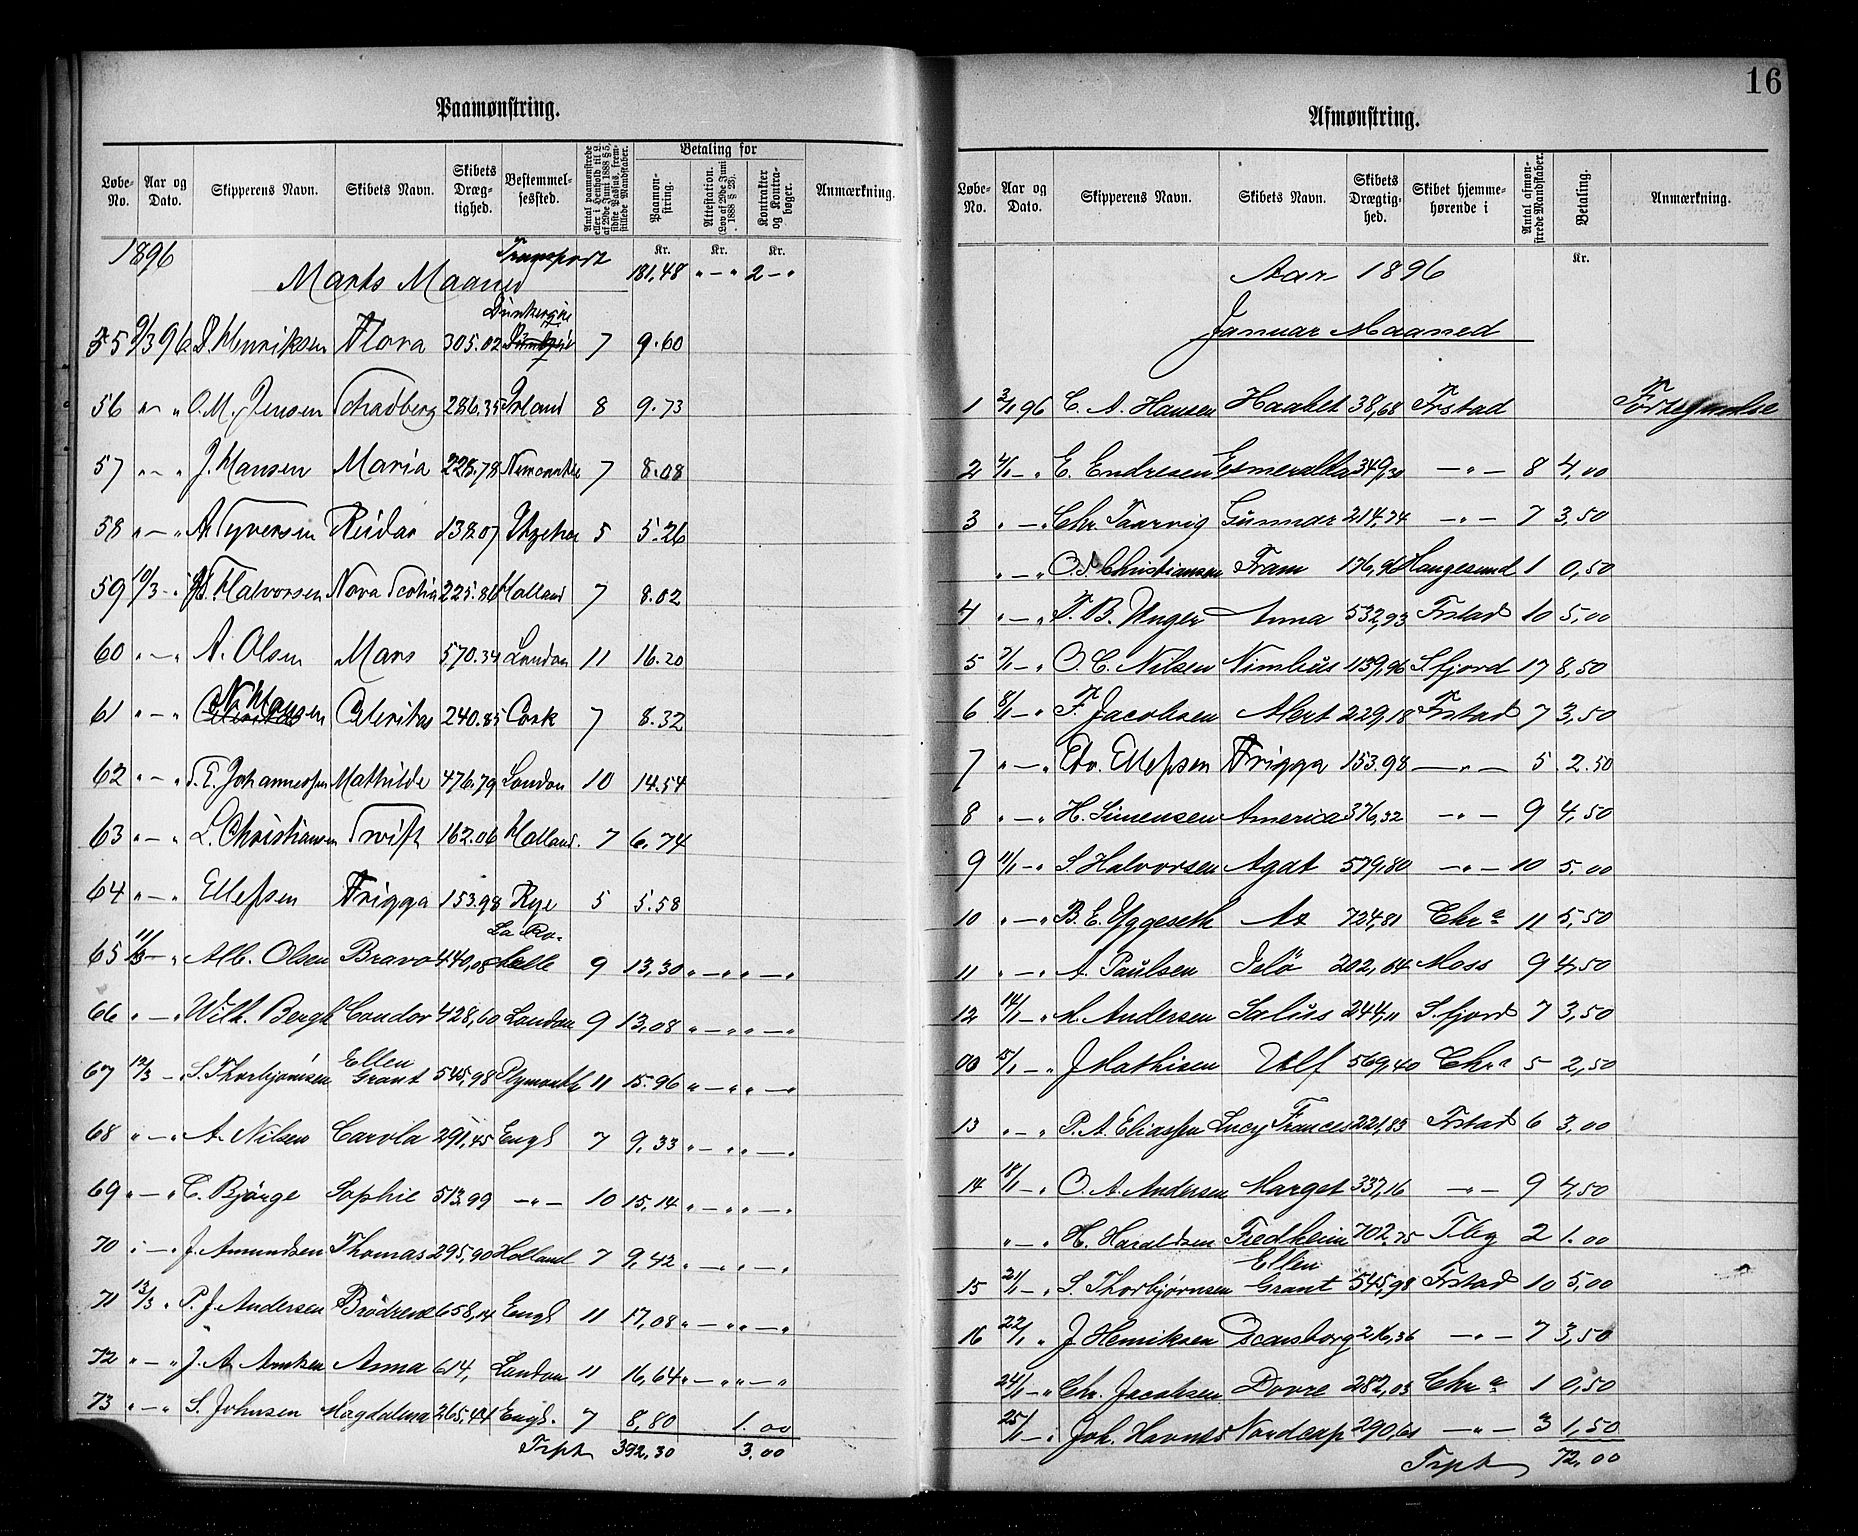 16
Paamønstring.
Løbe-No. Aar og Dato. Skipperens Navn. Skibets Navn. Skibets Dræg-tighed. Bestemmel-sessted. Antal paamønstrede eller i Henhold til L. af 29de Juni 1888 § 5, sidste Passus, frem-stillede Mandskaber. Betaling for Paamøn-string. Attestation. (Lov af 29de Juni 1888 § 25). Kontrakter og Kontra-bøger. Anmærkning.
Kr. Kr. Kr.
1896 Marts Maaned Transport 181,48 " — " 2 — "
55 9/3 96 Henriksen Flora 305.02 Dünkerque 7 9.60
56 " — " O. M. Jensen Stradberg 286.35 Irland 8 9.73
57 " — " J. Hansen Maria 228,78 7 8.08
58 " — " Syversen Reidar 138.07 5 5.26
59 10/3 — " Halvorsen Nova Scotia 225.86 Holland 7 8.02
60 " — " A. Olsen Mars 570.34 London 11 16.20
61 " — " N. Hansen Celeritas 240.85 Cork 7 8.32
62 " — " T. E. Johannessen Mathilde 476.79 London 10 14.54
63 " — " L. Christiansen Swift 162.06 Holland. 7 6.74
64 " — " Ellefsen Frigga 153.98 Rye 5 5.58
65 11/3 — " Alb. Olsen Bravo 440,08 La Ro-chelle 9 13,30 " — " " — "
66 " — " Wilh. Bergh Condor 428,60 London 9 13,08 " — " " — "
67 12/3 — " S. Thorbjörnsen Ellen Grant 545,98 Plymouth 11 15.96 " — " " — "
68 " — " A. Nilsen Carola 291,45 Engl 7 9,33 " — " " — "
69 " — " C. Björge Sophie 513,99 — " — 10 15,14 " — " " — "
70 " — " J. Amundsen Thomas 295,90 Holland 7 9,42 " — " " — "
71 13/3 " P. J. Andersen Brödrene 658,14 Engl 11 17,08 " — " " — "
72 " — " J. A. Arntzen Anna 614, London 11 16,64 " — " " — "
73 " — " S. Johnsen Magdalena 265,44 Engl. 7 8,80 1.00
Trpt 392.30 3.00
Afmønstring.
Løbe-No. Aar og Dato. Skipperens Navn. Skibets Navn. Skibets Drægtig-hed. Skibet hjemme-hørende i Antal afmøn-strede Mandskaber. Betaling. Anmærkning.
Kr.
Aar 1896
Januar Maaned
1 3/1 96 C. A. Hansen Haabet 38,68 Frstad
2 4/1 — " E. Endresen Esmeralda 349,30 — " — 8 4,00
3 " — " Chr. Taarvig Gunnar 214,74 — " — 7 3,50
" — " O. S. Christiansen Fram 176,96 Haugesund 1 0,50
4 " — " F. B. Unger Anna 532,93 Frstad 10 5,00
5 7/1 — " O. C. Nilsen Nimbus 1139,96 Sfjord 17 8,50
6 8/1 — " F. Jacobsen Alert 229,18 Frstad 7 3,50
7 " — " Edv. Ellefsen Frigga 153.98 — " — 5 2.50
8 " — " H. Simensen America 376,32 — " — 9 4,50
9 11/1 — " S. Halvorsen Agat 579,80 — " — 10 5.00
10 " — " B. E. Yggeseth Ax 724,81 Chra 11 5,50
11 " — " A. Paulsen Jelö 202,04 Moss 9 4,50
12 14/1 — " A. Andersen Salus 244,11 Sfjord 7 3,50
00 15/1 — " J Mathisen Ulf 569,40 Chra 5 2,50
13 " — " P. A. Eliassen Lucy Frances 221,83 Frstad 6 3,00
14 18/1 — " O. A. Andersen Marget 337,16 — " — 9 4,50
" — " H. Haraldsen Fredheim 702,75 Tbg 2 1.00
15 21/1 — " S. Thorbjørnsen Ellen Grant 545,98 Frstad 10 5,00
16 22/1 " J Henriksen Oscarsborg 216,36 — " — 7 3,50
24/1 — " Chr. Jacobsen Dovre 282,03 Chra 1 0,50
25/1 — " Joh. Havnes Nordcap 290,61 — " — 3 1,50
Trpt 72.00